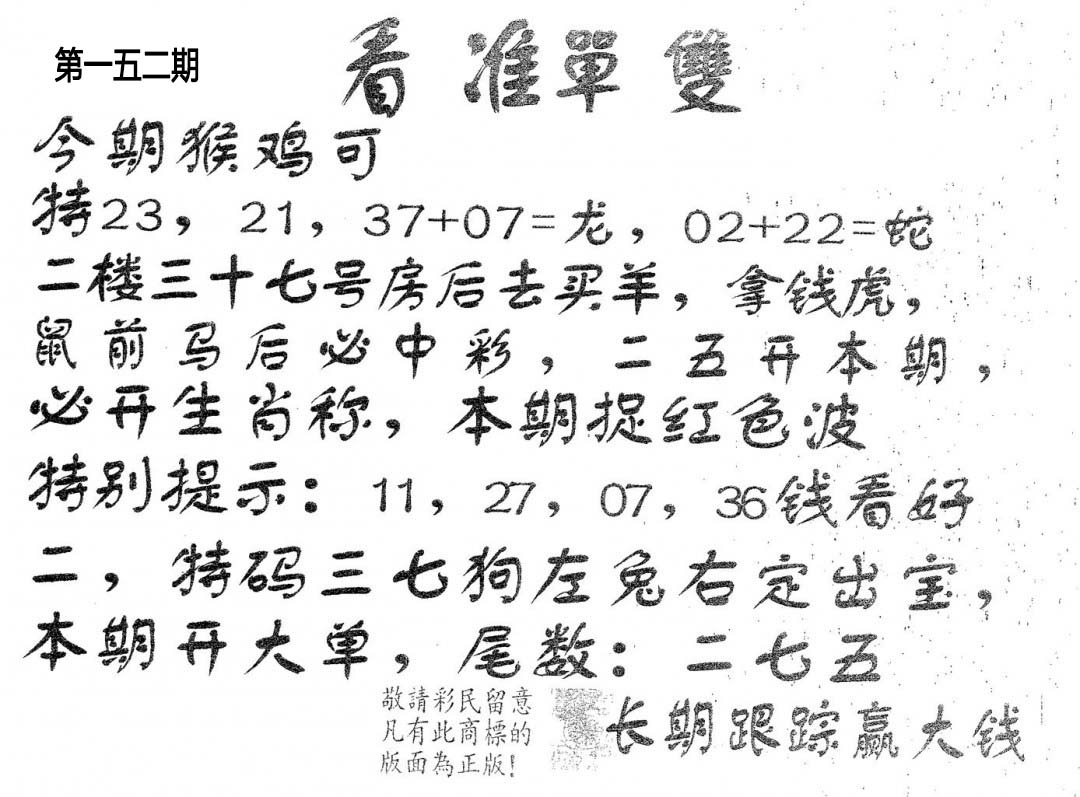 第一五二期
看准單雙
今期猴鸡可
特23，21，37+07=龙，02+22=蛇
二楼三十七号房后去买羊，拿钱虎，
鼠前马后必中彩，二五开本期，
必开生肖称，本期捉红色波
特别提示：11，27，07，36钱看好
二，特码三七狗左兔右定出宝，
本期开大单，尾数：二七五
敬請彩民留意
凡有此商標的
版面為正版！
长期跟踪赢大钱